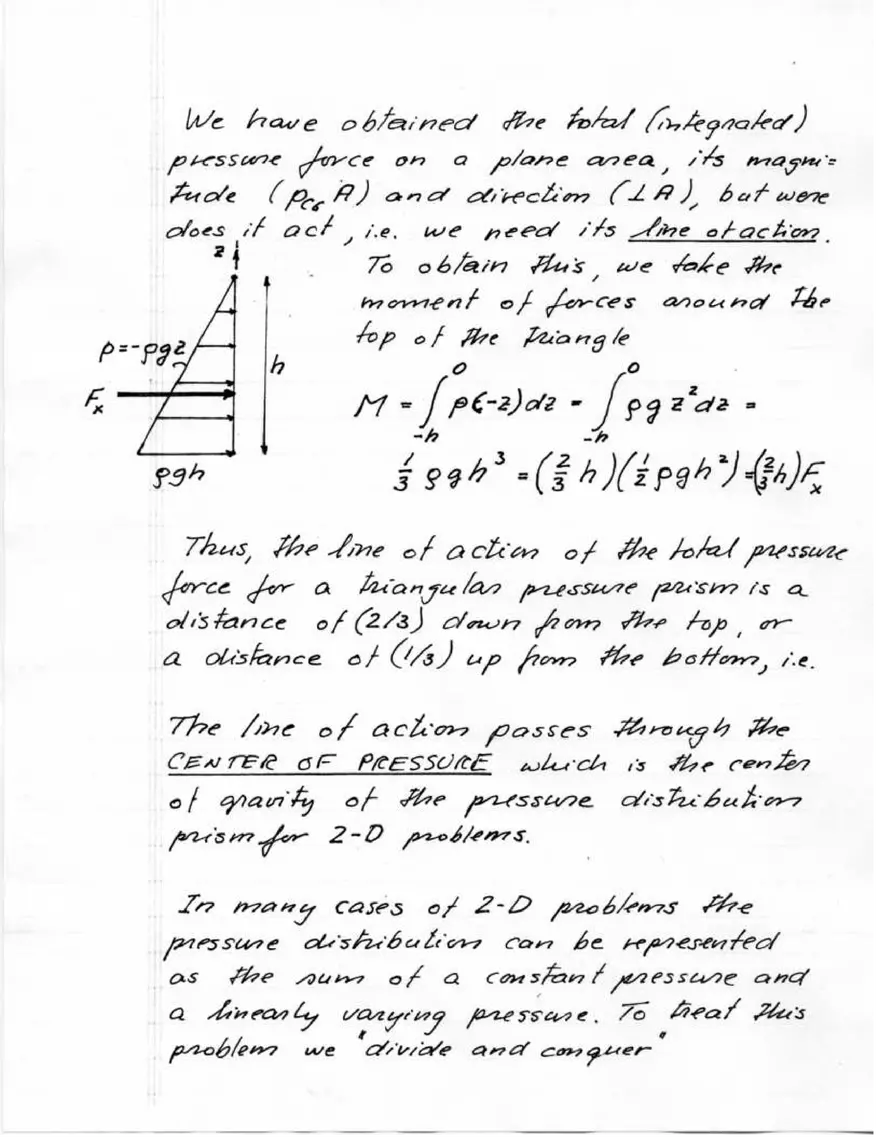 We have obtained the total (integrated)
pressure force on a plane area, its magni=
tude (p_CG A) and direction (⊥ A), but were
does it act, i.e. we need its line of action.
z
To obtain this, we take the
moment of forces around the
top of the triangle
p=-ρgz
h
F_x
M = ∫_{-h}^{0} p(-z)dz = ∫_{-h}^{0} ρg z²dz =
ρgh
1/3 ρgh³ = (2/3 h)(1/2 ρgh²) = (2/3 h)F_x
Thus, the line of action of the total pressure
force for a triangular pressure prism is a
distance of (2/3) down from the top, or
a distance of (1/3) up from the bottom, i.e.
The line of action passes through the
CENTER OF PRESSURE which is the center
of gravity of the pressure distribution
prism for 2-D problems.
In many cases of 2-D problems the
pressure distribution can be represented
as the sum of a constant pressure and
a linearly varying pressure. To treat this
problem we "divide and conquer"